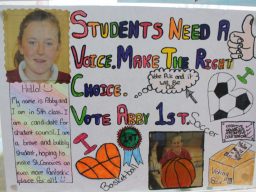 STUDENTS NEED A
VOICE. MAKE THE RIGHT
CHOICE.
VOTE ABBY 1ST.
Vote Abby and it
will be Okay
Hello!
My name is Abby and
I am in 5th class. I
am a candidate for
student council. I am
a brave and bubbly
student, hoping to
make St. Conaires an
even more fantastic
place for all!
I
Soccer
I
Basketball
Voting
Box